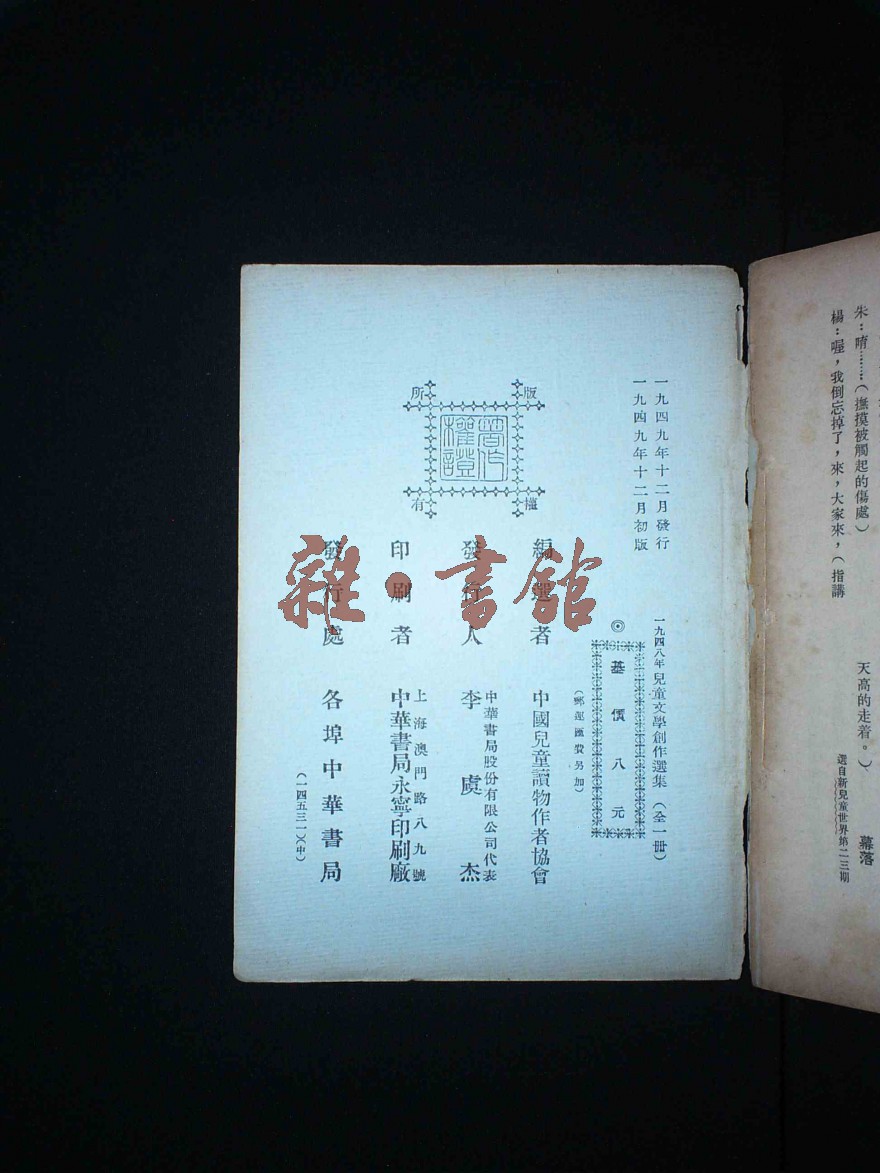 朱：唷………（撫摸被觸起的傷處）
楊：喔，我倒忘掉了，來，大家來，（指講
天高的走着。）
幕落
選自新兒童世界第二三期
一九四九年十二月發行
一九四九年十二月初版
一九四八年兒童文學創作選集（全一册）
◎基價八元
（郵運匯費另加）
版權所有
著作權證
編選者　中國兒童讀物作者協會
發行人　中華書局股份有限公司代表
李虞杰
印刷者　上海澳門路八九號
中華書局永寧印刷廠
發行處　各埠中華書局
（一四五三一）（中）
雜·書館